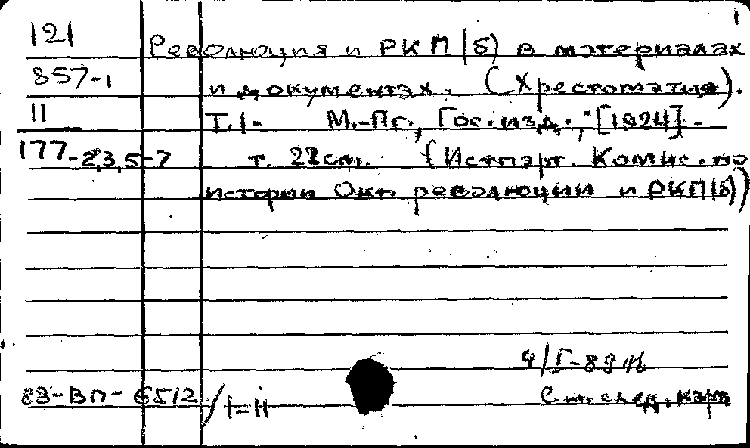 1
121 Революция и РКП(б) в материалах
857-1 и документах. (Хрестоматия).
11 Т.1- М.-Пг., Гос. изд., [1924]-
177-2,3,5-7 т. 22см. (Истпарт. Комис. по
истории Окт. революции и РКП(б))
4/I-89
83-ВП-6512/1-11 См. след. карт